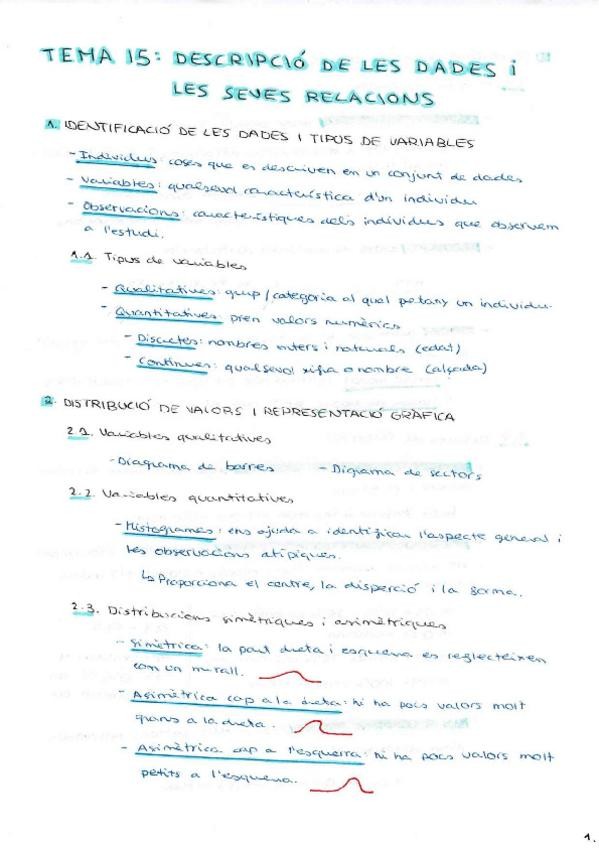 TEMA 15: DESCRIPCIÓ DE LES DADES i
LES SEVES RELACIONS
1. IDENTIFICACIÓ DE LES DADES I TIPUS DE VARIABLES
- Individus: coses que es descriuen en un conjunt de dades
- Variables: qualsevol característica d'un individu
- Observacions: característiques dels individus que observem
a l'estudi.
1.1. Tipus de variables
- Qualitatives: grup/categoria al qual petany un individu.
- Quantitatives: pren valors numèrics
- Discretes: nombres enters i naturals (edat)
- Contínues: qualsevol xifra o nombre (alçada)
2. DISTRIBUCIÓ DE VALORS I REPRESENTACIÓ GRÀFICA
2.1. Variables qualitatives
- Diagrama de barres - Digrama de sectors
2.2. Variables quantitatives
- Histogrames: ens ajuda a identificar l'aspecte general i
les observacions atípiques.
↳ Proporciona el centre, la disperció i la forma.
2.3. Distribucions simètriques i asimètriques
- Simètrica: la part dreta i esquerra es reflecteixen
com un mirall.
- Asimètrica cap a la dreta: hi ha pocs valors molt
grans a la dreta.
- Asimètrica cap a l'esquerra: hi ha pocs valors molt
petits a l'esquerra.
1.